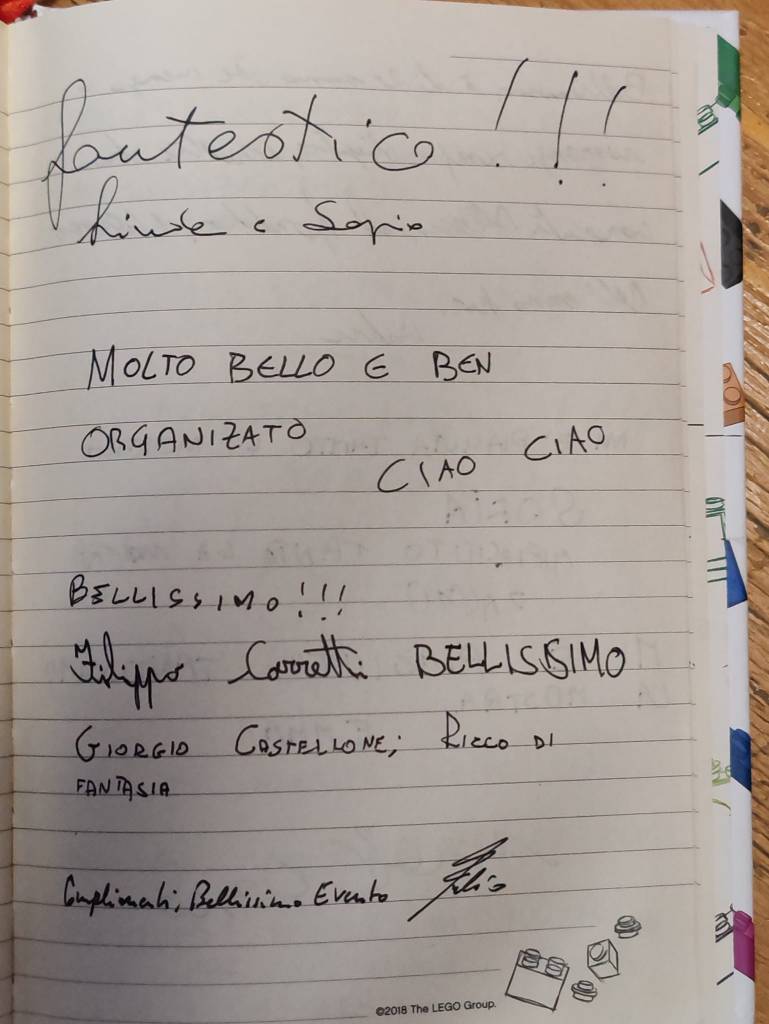 fantastico !!!
e
MOLTO BELLO E BEN
ORGANIZATO
CIAO CIAO
BELLISSIMO!!!
Filippo Corretti BELLISSIMO
GIORGIO CASTELLONE; RICCO DI
FANTASIA
Complimenti, Bellissimo Evento
©2018 The LEGO Group.